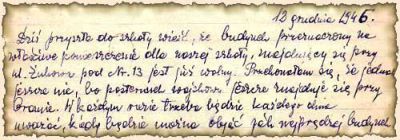 12 grudnia 1945.
Dziś przyszła do szkoły wieść, że budynek przeznaczony na
właściwe pomieszczenie dla naszej szkoły, znajdujący się przy
ul. pod Nr. 13 jest już wolny. Przekonałam się, że jednak
jeszcze nie, bo posterunek wojskowy jeszcze znajduje się przy
bramie. W każdym razie trzeba będzie każdego dnia
uważać, kiedy będzie można objąć jak najprędzej budynek